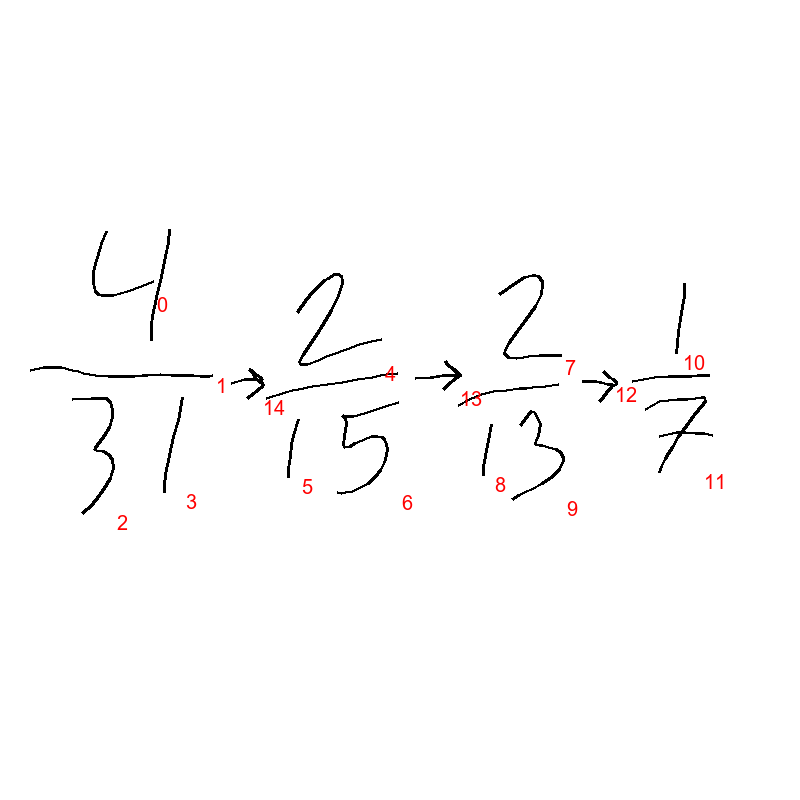 4/31 → 2/15 → 2/13 → 1/7
0 1 2 3 14 4 5 6 13 7 8 9 12 10 11